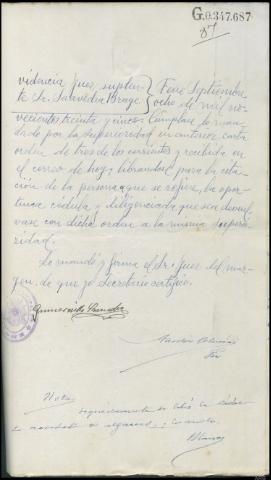 G.0.347.687
87
videncia Juez suplen- Fene Septiembre
te Sr. Saavedra Brage ocho de mil no-
vecientos treinta y cinco. Cúmplase lo man-
dado por la superioridad en anterior carta
orden de tres de los corrientes y recibida en
el correo de hoy, librándose para la cita-
ción de la persona que se refiere, la opor-
tuna cédula, y diligenciada que sea devuél-
vase con dicha orden a la misma superio-
ridad.
Lo mandó y firma el Sr. Juez del mar-
gen, de que yo Secretario certifico.
Gumersindo Saavedra
Nota
seguidamente se libró la cédula